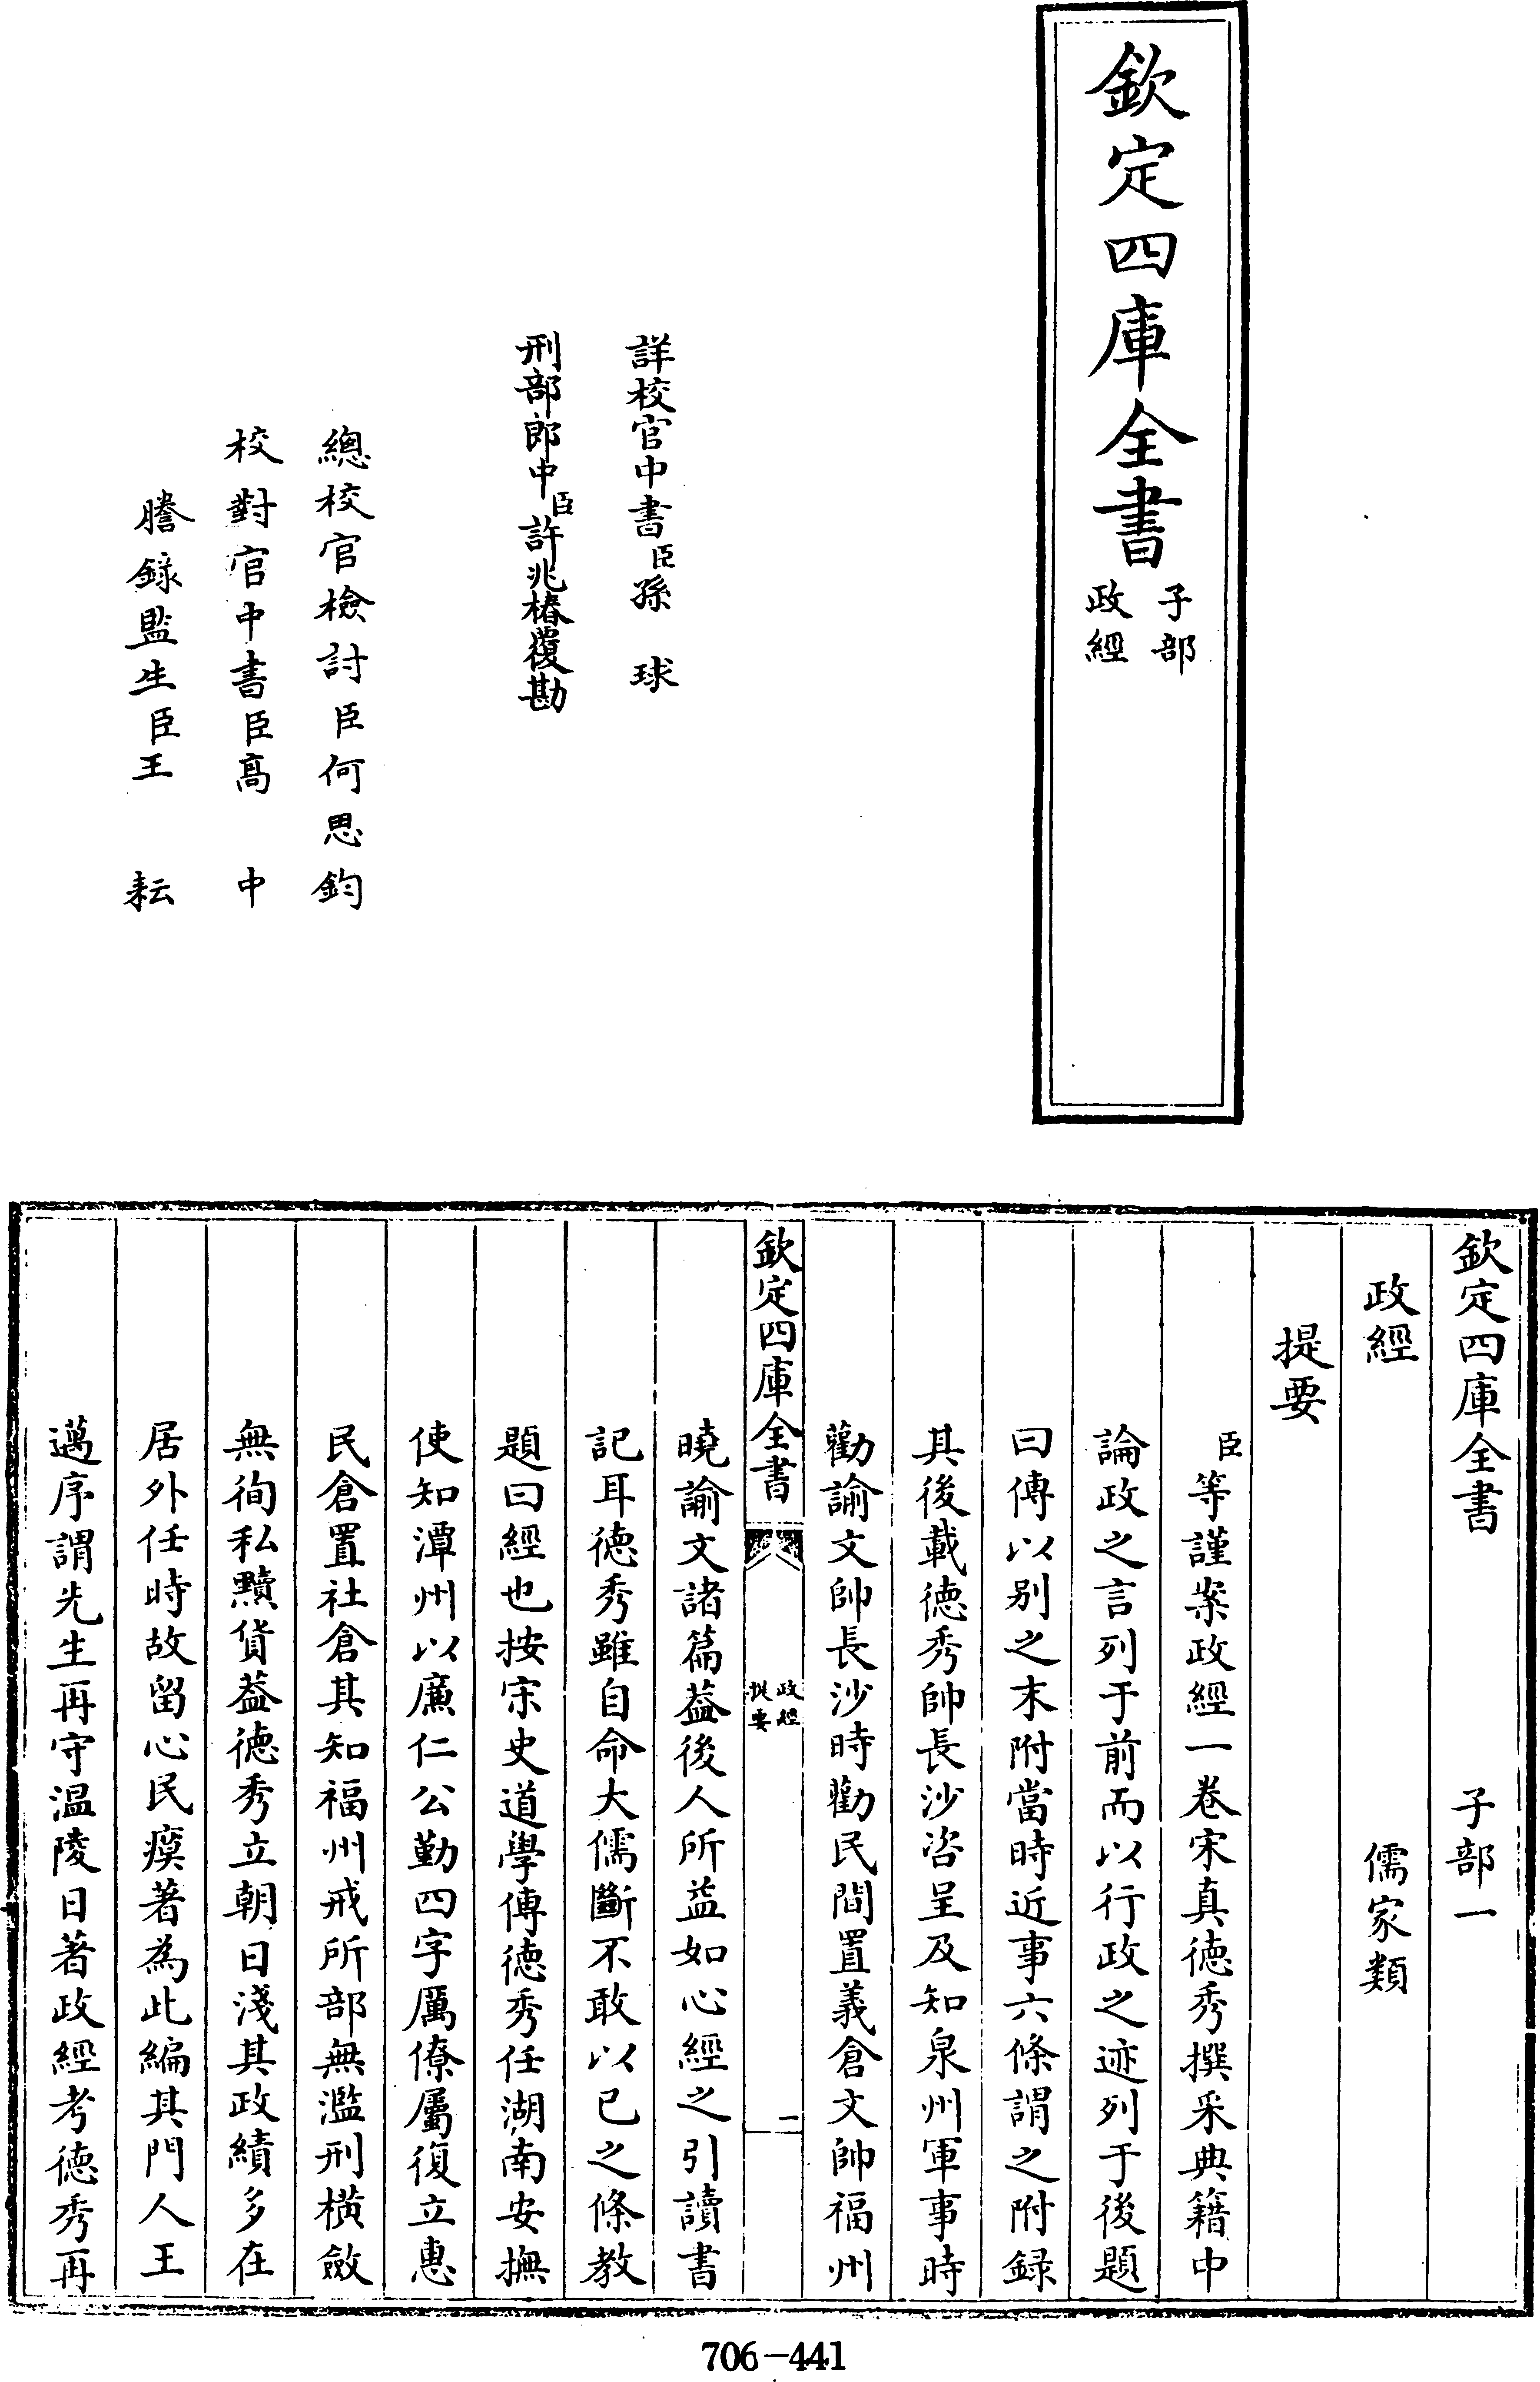 欽定四庫全書
子部
政經
詳校官中書臣孫球
刑部郎中臣許兆椿覆勘
總校官檢討臣何思鈞
校對官中書臣高中
謄錄監生臣王耘
欽定四庫全書 子部一
政經 儒家類
提要
臣等謹案政經一卷宋真德秀撰采典籍中
論政之言列于前而以行政之迹列于後題
曰傳以别之末附當時近事六條謂之附録
其後載德秀帥長沙咨呈及知泉州軍事時
勸諭文帥長沙時勸民間置義倉文帥福州
欽定四庫全書
政經
提要
一
曉諭文諸篇葢後人所益如心經之引讀書
記耳德秀雖自命大儒斷不敢以已之條教
題曰經也按宋史道學傳德秀任湖南安撫
使知潭州以廉仁公勤四字厲僚屬復立惠
民倉置社倉其知福州戒所部無濫刑横斂
無徇私黷貨葢德秀立朝日淺其政績多在
居外任時故留心民瘼著為此編其門人王
邁序謂先生再守温陵日著政經考德秀再
706-441